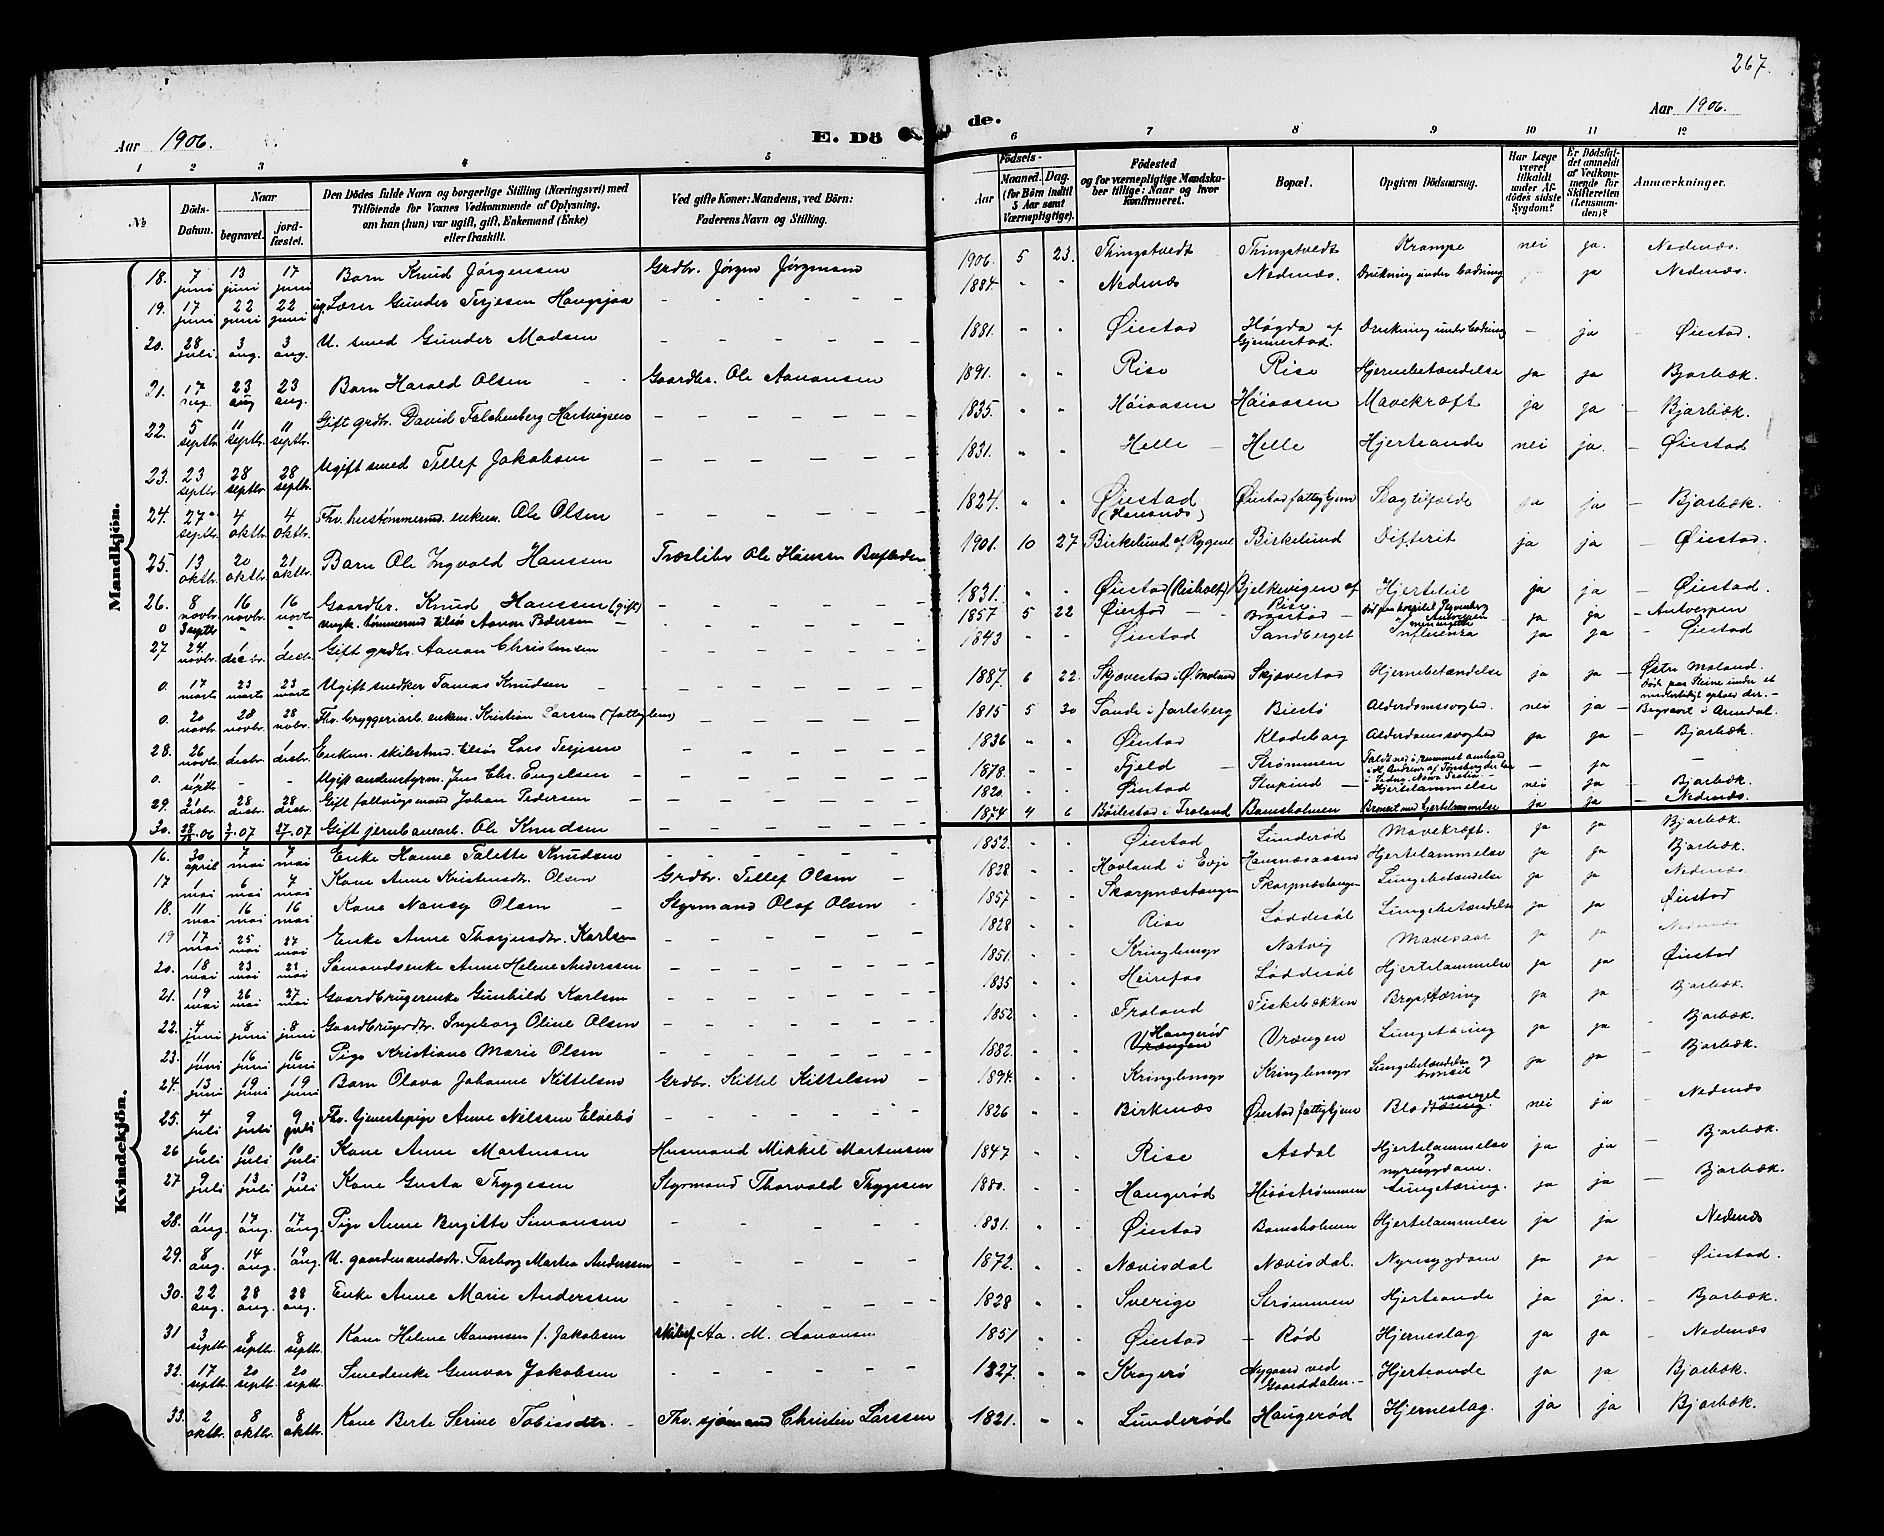 267.
Aar 1906.
E. Dö de.
Aar 1906.
1 2 3 4 5 6 7 8 9 10 11 12
№
Döds-Datum.
Naar begravet. jordfæstet.
Den Dödes fulde Navn og borgerlige Stilling (Næringsvei) med Tilföiende for Voxnes Vedkommende af Oplysning, om han (hun) var ugift, gift, Enkemand (Enke) eller fraskilt.
Ved gifte Koner: Mandens, ved Börn: Faderens Navn og Stilling.
Födsels-
Aar
Maaned. Dag.
(for Börn indtil 5 Aar samt Værnepligtige).
Födested og for værnepligtige Mandskaber tillige: Naar og hvor konfirmeret.
Bopæl.
Opgiven Dödsaarsag.
Har Læge været tilkaldt under Afdödes sidste Sygdom?
Er Dödsfaldet anmeldt af Vedkommende for Skifteretten (Lensmanden)?
Anmærkninger.
Mandkjön.
18. 7 juni 13 juni 17 juni Barn Knud Jörgensen Grdbr. Jörgen Jörgensen 1906 5 23 Thingstvedt Thingstvedt Krampe nei ja. Nedenæs.
19. 17 juni 22 juni 22 juni ug. Lærer Gunder Terjesen Haugsjaa 1884. Nedenæs Nedenæs. Drukning under badning ja Nedenæs.
20. 28 juli 3 aug. 3 aug. U. smed Gunder Madsen 1881. Øiestad Høgda af Gjennestad. Drukning under badning - ja Øiestad.
21. 17 aug. 23 aug 23 aug. Barn Harald Olsen Gaardbr. Ole Aanonsen 1891. Rise Rise Hjernebetændelse ja ja Bjorbæk.
22. 5 septbr. 11 septbr. 11 septbr. Gift grdbr. David Falchenberg Hartvigsen 1835. Håiaasen Håiaasen Mavekræft ja ja Bjorbæk.
23. 23 septbr. 28 septbr. 28 septbr. Ugift smed Tellef Jakobsen 1831. Helle Helle Hjerteande nei ja. Øiestad
24. 27 septbr. 4 oktbr. 4 oktbr. Fhv. hustømmermd. enkem. Ole Olsen 1824. Øiestad Øiestad fattighjem Slagtilfælde ja ja Bjorbæk.
25. 13 oktbr. 20 oktbr. 21 oktbr. Barn Ole Ingvald Hanssen Træsliber Ole Hanssen Bufladen 1901. 10 27 Birkelund af Rygene Birkelund Difterit ja ja Øiestad.
26. 8 novbr. 16 novbr. 16 novbr. Gaardbr. Knud Hanssen (gift) 1831. Øiestad (Reiholt) Bjelkevigen af Rise. Hjertefeil ja ja Øiestad.
0 3 septbr. ungk. tømmermd. tilsøs Aanon Pedersen 1857 5 22 Øiestad ja ja Antverpen
27 24. novbr. 1 decbr. 1 decbr. Gift grdbr. Aanon Christensen 1843 Øiestad Sandberget Influenza ja ja Øiestad
0. 17 marts 23 marts 23 marts Ugift snedker Tomas Knudsen 1887. 6 22. Skjævestad i Ø. Moland Skjævestad Hjernebetændelse ja ja Østre Moland.
0. 20 novbr. 28 novbr. 28 novbr. Fhv. bryggeriarb. enkem. Kristian Larssen (fattiglem) 1815 5 30 Sande i Jarlsberg Biestø Alderdomssvaghed nei ja Død paa Steine under et midlertidigt ophold der. - Begravet i Arendal.
28. 26 novbr. 1 decbr. 1 decbr. Enkem. skibstmd. tilsøs Lars Terjesen 1836 Øiestad Klodeborg Alderdomssvaghed ja ja Bjorbæk.
0. 11 septbr. - - Ugift andenstyrm. Jens Chr. Engelsen 1878. Fjeld Strømmen - ja
29. 21 decbr. 28 decbr. 28 decbr. Gift fattiglem mand Johan Pedersen 1820. Øiestad Stupind Hjertelammelse nei ja Bjorbæk.
30. 28/12 06 3/1 07 27/1 07 Gift jernbanearb. Ole Knudsen 1874 4 6 Böilestad i Froland Bamsholmen Bronsit med hjertelammelse ja ja Nedenæs.
Kvindekjön.
16. 30 april 7 mai 7 mai Enke Hanne Talette Knudsen 1852. Øiestad Lunderød Mavekræft. ja ja Bjorbæk.
17 1 mai 6 mai 7 mai Kone Anne Kristensdtr. Olsen Grdbr. Tellef Olsen 1828 Hovland i Evje Havnæsaasen Hjertelammelse ja ja Bjorbæk.
18. 11 mai 16 mai 16 mai Kone Nancy Olsen Styrmand Olaf Olsen 1857 Skarpnæstangen Skarpnæstangen Lungebetændelse ja ja Nedenæs.
19 17 mai 25 mai 27 mai Enke Anne Thorjusdtr. Karlsen 1828 Rise Løddesøl Lungebetændelse ja ja Øiestad
20. 18 mai 23 mai 23 mai Sømandsenke Anne Helene Anderssen 1851. Kringlemyr Natvig Mavesaar ja ja Nedenæs
21. 19 mai 26 mai 27 mai Gaardbrugerenke Gunhild Karlsen 1835 Heirefos Løddesøl Hjertelammelse ja ja Øiestad
22. 4 juni 8 juni 8 juni Gaardbrugerdtr. Ingeborg Oline Olsen 1852 Froland Fiskebækken Brysttæring ja ja Bjorbæk.
23. 11 juni 16 juni 16 juni Pige Kristiane Marie Olsen 1882. Haugerød Vrængen Vrængen Lungetæring ja ja Bjorbæk.
24. 13 juni 19 juni 19 juni Barn Olava Johanne Kittelsen Grdbr. Kittel Kittelsen 1894. Kringlemyr Kringlemyr Lungebetændelse og bronsit ja ja Bjorbæk.
25. 4 juli 9 juli 9 juli Fhv. tjenestepige Anne Nilssen Elvebö 1826 Birkenæs Øiestad fattighjem Blodmangel nei ja Nedenæs
26 6 juli 10 juli 10 juli Kone Anne Martensen Husmand Mikkel Mortensen 1847 Rise Asdal Hjertelammelse og nyresygdom. ja ja Bjorbæk.
27 9 juli 13 juli 13 juli Kone Gusta Thygesen Styrmand Thorvald Thygesen 1880. Haugerød Hisöströmmen Lungetæring. ja ja Bjorbæk.
28. 11 aug. 17 aug. 17 aug. Pige Anne Bergitte Simonsen 1831. Øiestad Bamsholmen Hjertelammelse ja ja Nedenæs
29. 8 aug. 14 aug. 19 aug. U. gaardmandsdtr. Torborg Martea Anderssen 1872. Nævisdal Nævisdal. Nyresygdom ja ja Øiestad.
30. 22 aug. 28 aug. 28 aug. Enke Anne Marie Anderssen 1828 Sverige Strømmen Hjerteande ja ja. Bjorbæk.
31 3 septbr. 8 septbr. 8 septbr. Kone Helene Aanonsen f. Jakobsen skibsf. Aa. M. Aanonsen 1851 Øiestad Rød Hjerneslag ja ja Nedenæs
32. 17 septbr. 20 septbr. 20 septbr. Smedenke Gunvor Jakobsen 1827 Kragerø Nygaard ved Gaarddalen. Hjerteande ja ja Bjorbæk.
33. 2 oktbr. 8 oktbr. 8 oktbr. Kone Berte Serine Tobiasdtr. Fhv. sjømand Christen Larssen 1821. Lunderød Haugerød Hjerneslag. ja ja Bjorbæk.